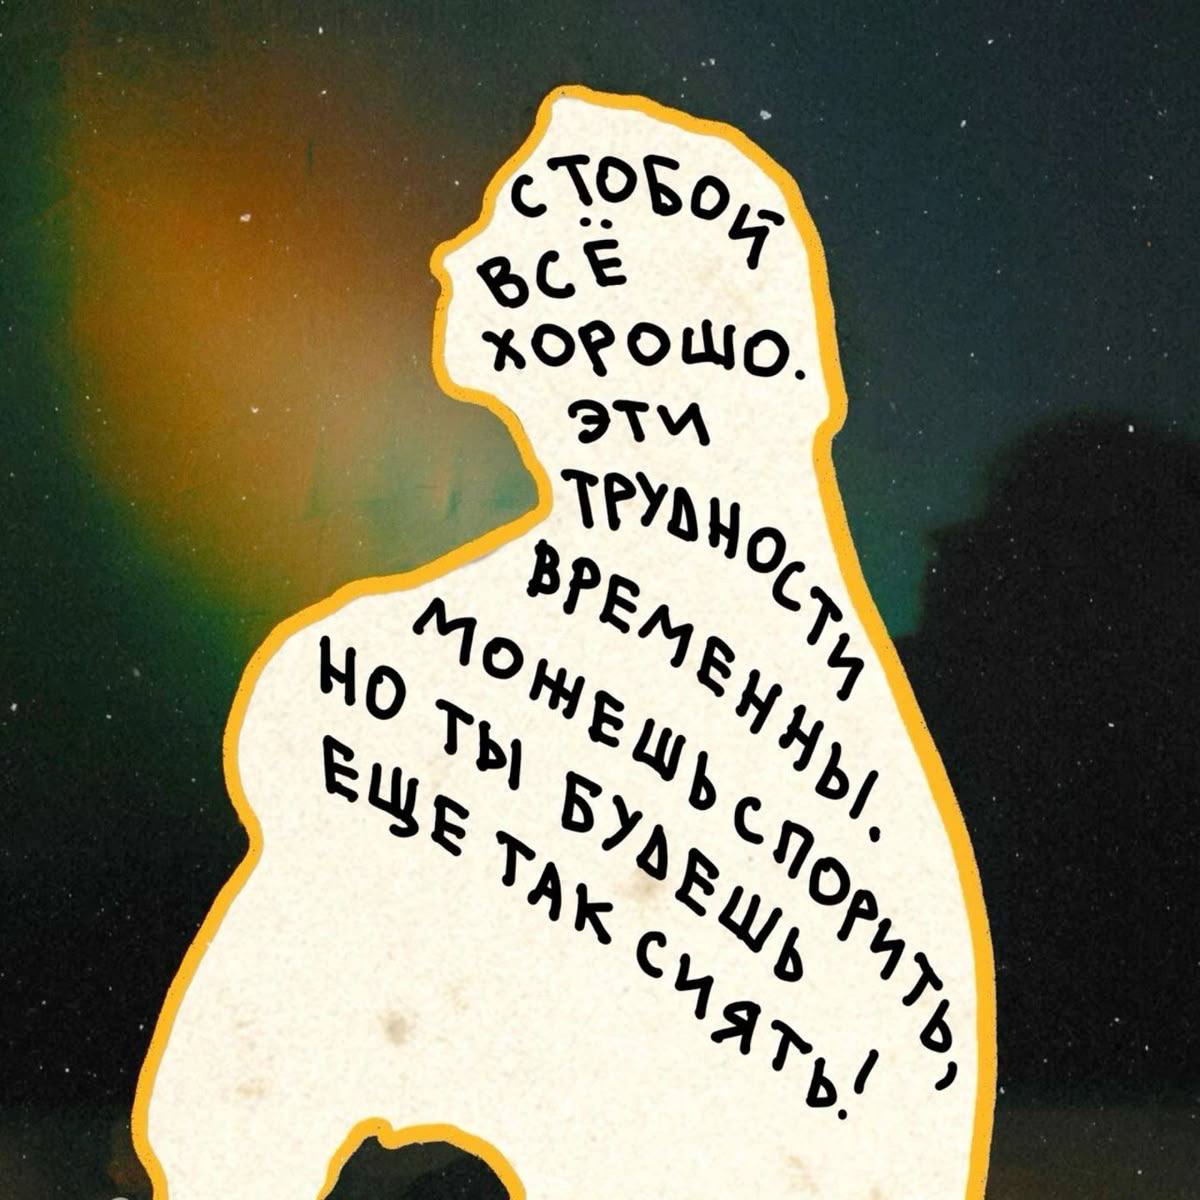 С ТОБОЙ
ВСЁ
ХОРОШО.
ЭТИ
ТРУДНОСТИ
ВРЕМЕННЫ.
МОЖЕШЬ СПОРИТЬ,
НО ТЫ БУДЕШЬ
ЕЩЕ ТАК СИЯТЬ!